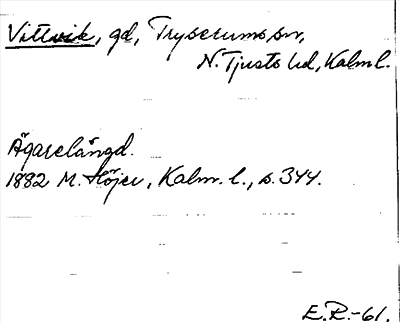 Vittvik, gd, Tryserums sn,
N. Tjusts hd, Kalm l.
Ägarelängd.
1882 M. Höjer, Kalm. l., s. 344.
E.R.-61.